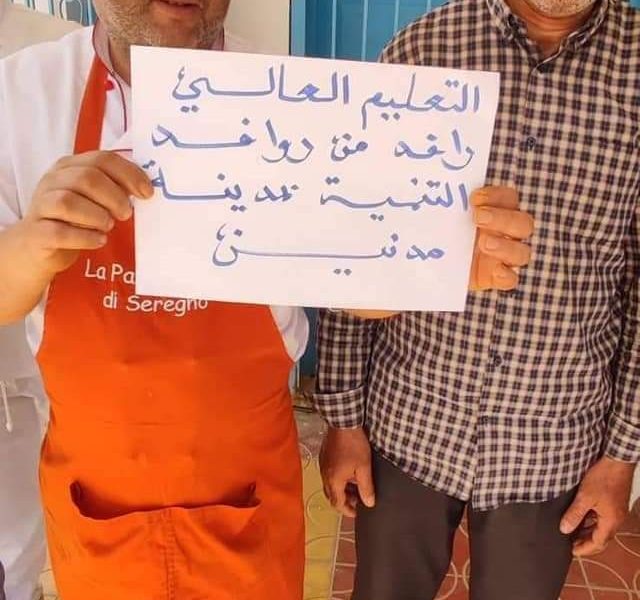 التعليم العالي
رافد من روافد
التنمية بمدينة
مدنين
La Pa
di Seregno